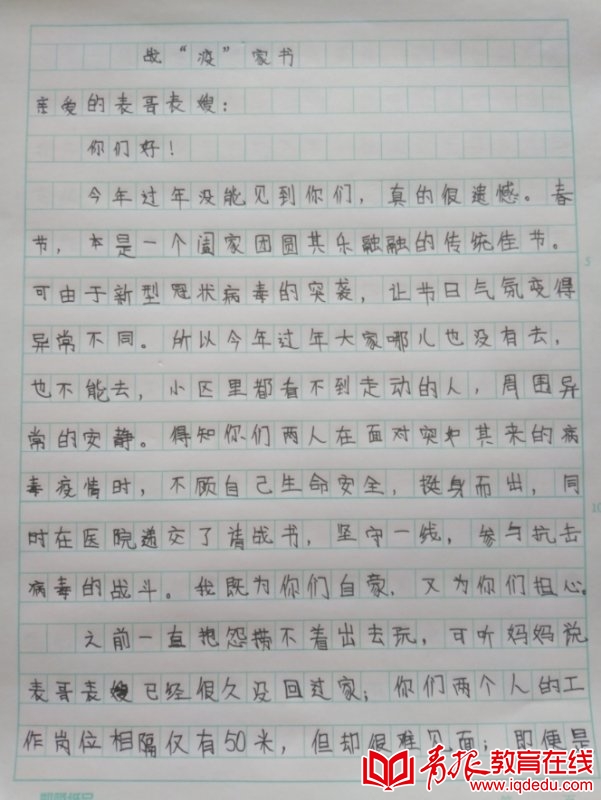 战“疫”家书
亲爱的表哥表嫂：
你们好！
今年过年没能见到你们，真的很遗憾。春
节，本是一个阖家团圆其乐融融的传统佳节。
可由于新型冠状病毒的突袭，让节日气氛变得
异常不同。所以今年过年大家哪儿也没有去，
也不能去，小区里都看不到走动的人，周围异
常的安静。得知你们两人在面对突如其来的病
毒疫情时，不顾自己生命安全，挺身而出，同
时在医院递交了请战书，坚守一线，参与抗击
病毒的战斗。我既为你们自豪，又为你们担心。
之前一直抱怨捞不着出去玩，可听妈妈说
表哥表嫂已经很久没回过家；你们两个人的工
作岗位相隔仅有50米，但却很难见面；即便是
青报教育在线
www.iqdedu.com